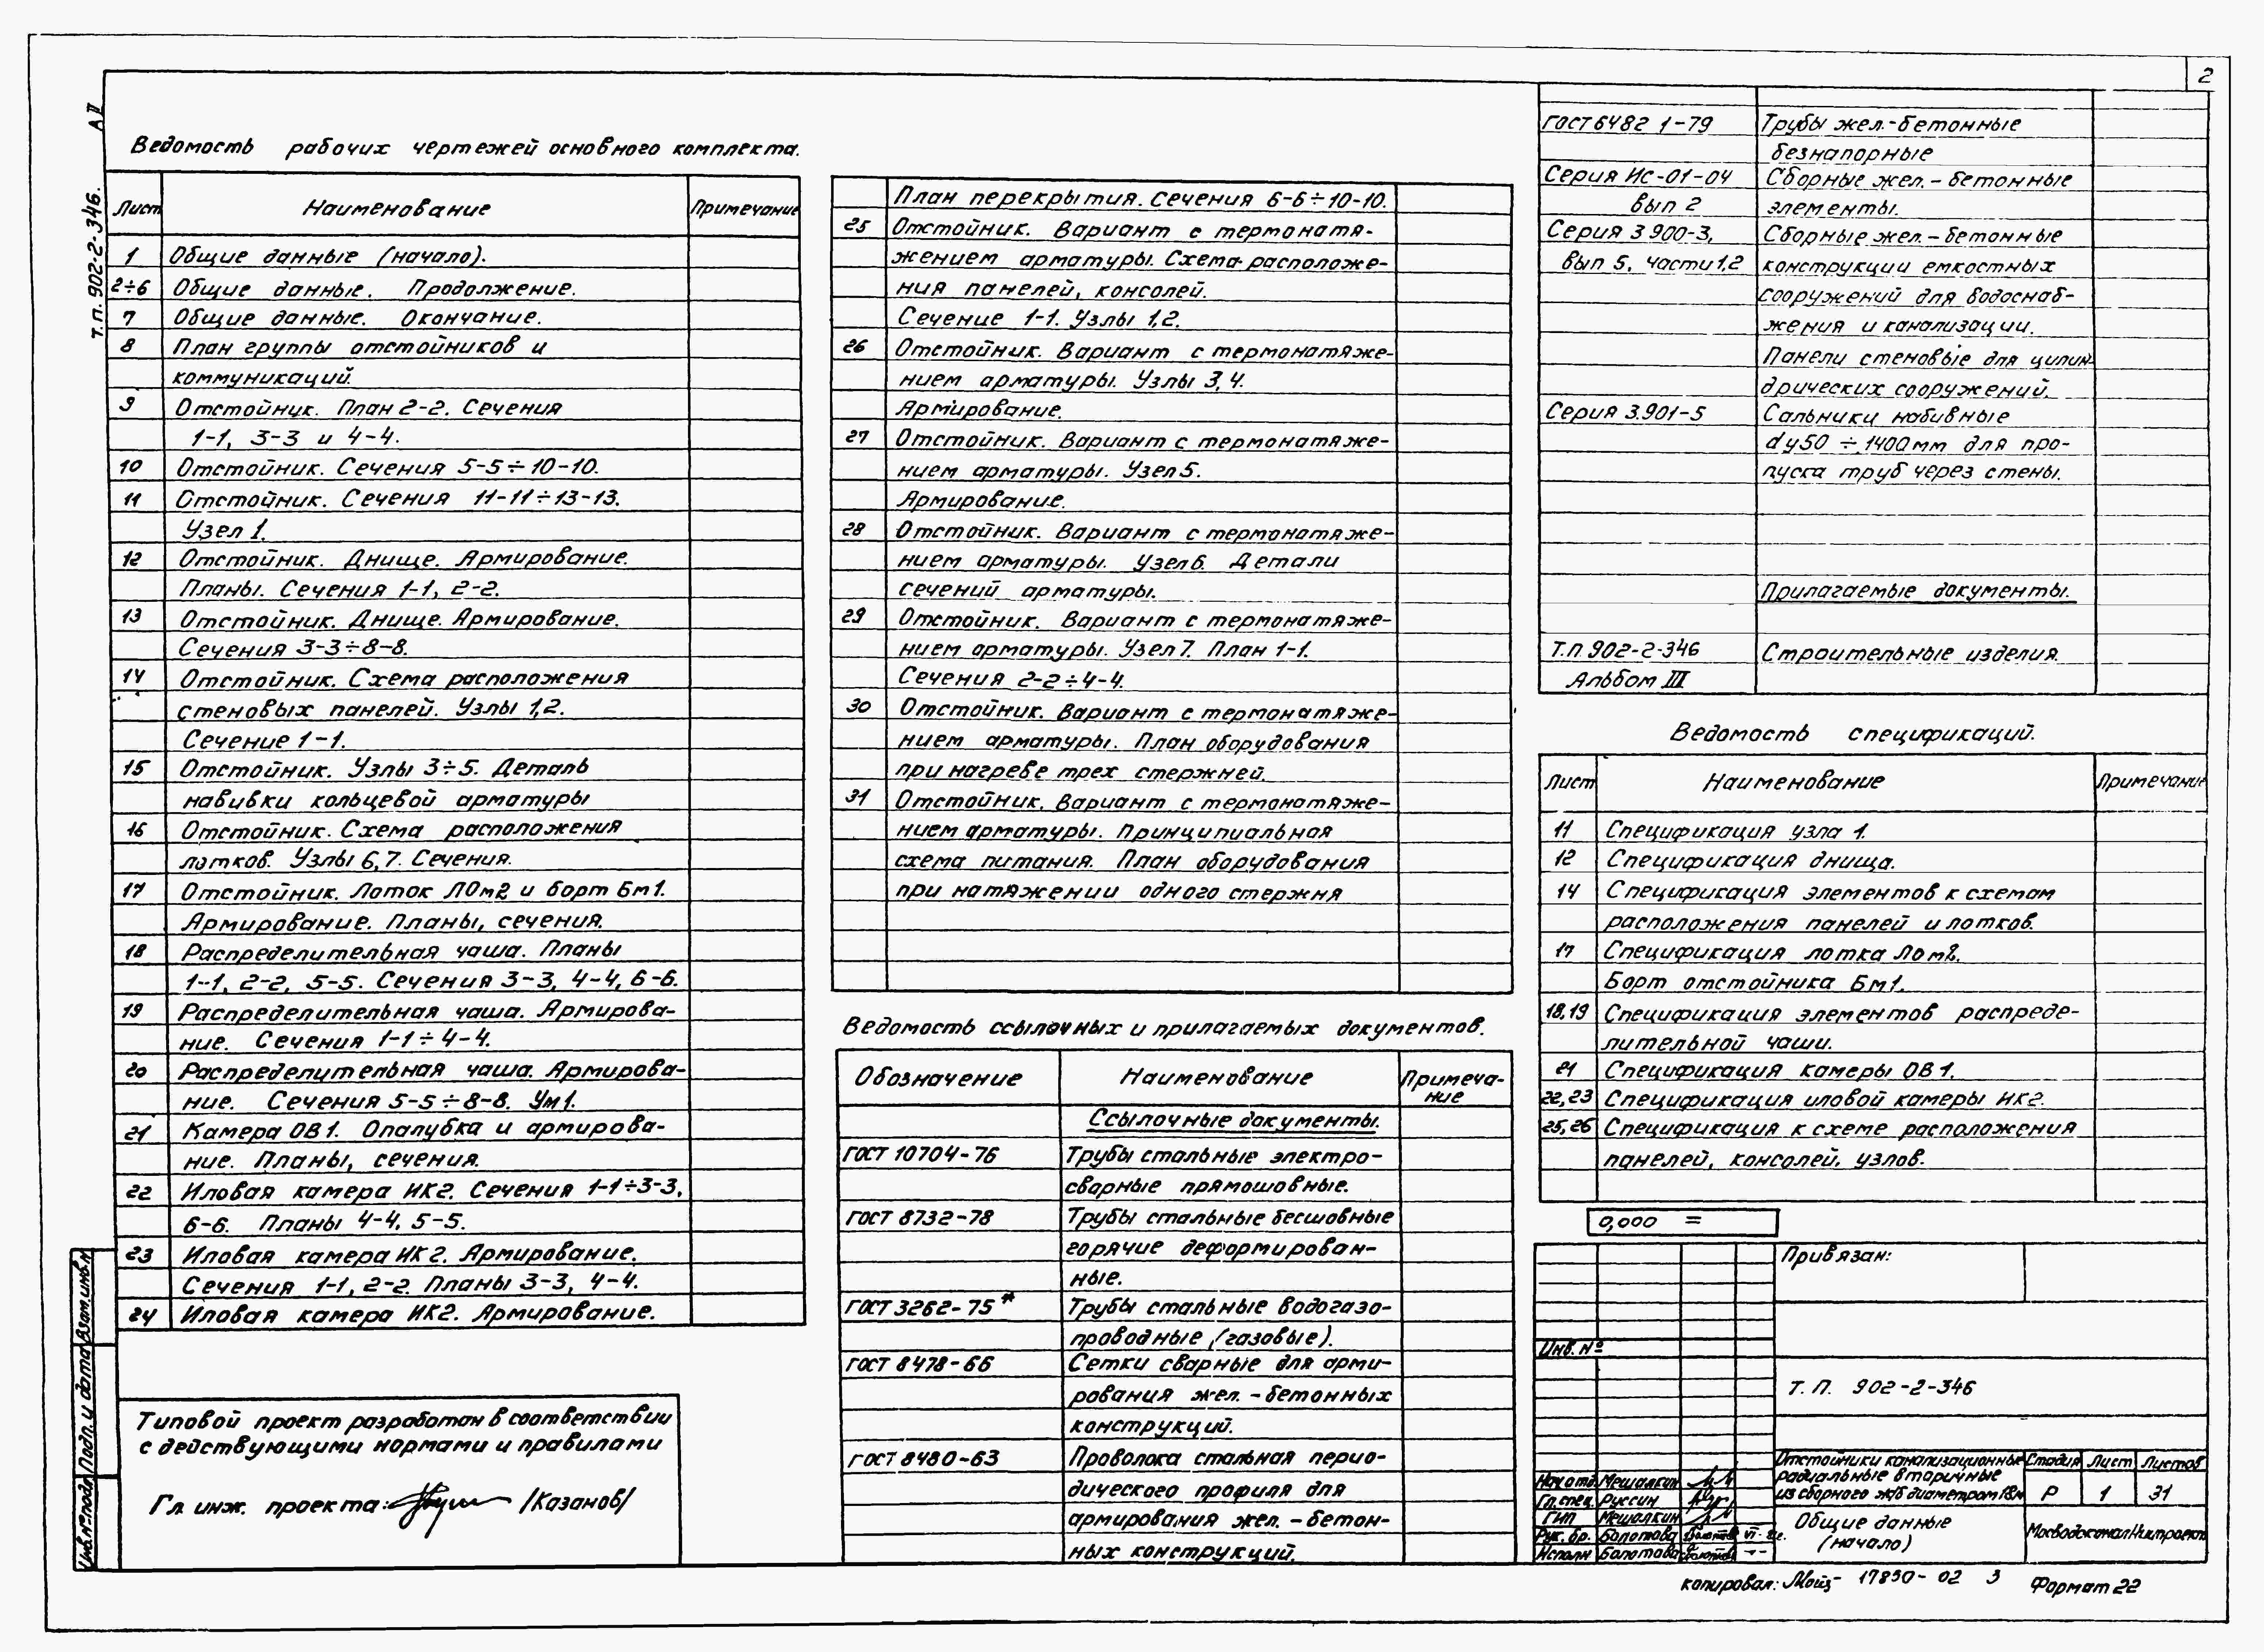 2
А II
т.п. 902-2-346.
Ведомость рабочих чертежей основного комплекта.
Лист Наименование Примечание
1 Общие данные (начало).
2÷6 Общие данные. Продолжение.
7 Общие данные. Окончание.
8 План группы отстойников и
коммуникаций.
9 Отстойник. План 2-2. Сечения
1-1, 3-3 и 4-4.
10 Отстойник. Сечения 5-5÷10-10.
11 Отстойник. Сечения 11-11÷13-13.
Узел 1.
12 Отстойник. Днище. Армирование.
Планы. Сечения 1-1, 2-2.
13 Отстойник. Днище. Армирование.
Сечения 3-3÷8-8.
14 Отстойник. Схема расположения
стеновых панелей. Узлы 1,2.
Сечение 1-1.
15 Отстойник. Узлы 3÷5. Деталь
навивки кольцевой арматуры
16 Отстойник. Схема расположения
лотков. Узлы 6,7. Сечения.
17 Отстойник. Лоток ЛОм2 и борт Бм1.
Армирование. Планы, сечения.
18 Распределительная чаша. Планы
1-1, 2-2, 5-5. Сечения 3-3, 4-4, 6-6.
19 Распределительная чаша. Армирова-
ние. Сечения 1-1÷4-4.
20 Распределительная чаша. Армирова-
ние. Сечения 5-5÷8-8. Ум1.
21 Камера ОВ1. Опалубка и армирова-
ние. Планы, сечения.
22 Иловая камера ИК2. Сечения 1-1÷3-3,
6-6. Планы 4-4, 5-5.
23 Иловая камера ИК2. Армирование.
Сечения 1-1, 2-2. Планы 3-3, 4-4.
24 Иловая камера ИК2. Армирование.
План перекрытия. Сечения 6-6÷10-10.
25 Отстойник. Вариант с термонатя-
жением арматуры. Схема расположе-
ния панелей, консолей.
Сечение 1-1. Узлы 1,2.
26 Отстойник. Вариант с термонатяже-
нием арматуры. Узлы 3,4.
Армирование.
27 Отстойник. Вариант с термонатяже-
нием арматуры. Узел 5.
Армирование.
28 Отстойник. Вариант с термонатяже-
нием арматуры. Узел 6. Детали
сечений арматуры.
29 Отстойник. Вариант с термонатяже-
нием арматуры. Узел 7. План 1-1.
Сечения 2-2÷4-4.
30 Отстойник. Вариант с термонатяже-
нием арматуры. План оборудования
при нагреве трех стержней.
31 Отстойник. Вариант с термонатяже-
нием арматуры. Принципиальная
схема питания. План оборудования
при натяжении одного стержня
Ведомость ссылочных и прилагаемых документов.
Обозначение Наименование Примеча-
ние
Ссылочные документы.
ГОСТ 10704-76 Трубы стальные электро-
сварные прямошовные.
ГОСТ 8732-78 Трубы стальные бесшовные
горячие деформирован-
ные.
ГОСТ 3262-75* Трубы стальные водогазо-
проводные (газовые).
ГОСТ 8478-66 Сетки сварные для арми-
рования жел.-бетонных
конструкций.
ГОСТ 8480-63 Проволока стальная перио-
дического профиля для
армирования жел.-бетон-
ных конструкций.
ГОСТ 6482 1-79 Трубы жел.-бетонные
безнапорные
Серия ИС-01-04 Сборные жел.-бетонные
вып 2 элементы.
Серия 3 900-3, Сборные жел.-бетонные
вып 5, части 1,2 конструкции емкостных
сооружений для водоснаб-
жения и канализации.
Панели стеновые для цилин-
дрических сооружений.
Серия 3.901-5 Сальники набивные
dу50 ÷ 1400мм для про-
пуска труб через стены.
Прилагаемые документы.
Т.П. 902-2-346 Строительные изделия.
Альбом III
Ведомость спецификаций.
Лист Наименование Примечание
11 Спецификация узла 1.
12 Спецификация днища.
14 Спецификация элементов к схемам
расположения панелей и лотков.
17 Спецификация лотка ЛОм2.
Борт отстойника Бм1.
18,19 Спецификация элементов распреде-
лительной чаши.
21 Спецификация камеры ОВ1.
22,23 Спецификация иловой камеры ИК2.
25,26 Спецификация к схеме расположения
панелей, консолей, узлов.
0,000 =
Привязан:
Инв. №
Т. П. 902-2-346
Отстойники канализационные
радиальные вторичные
из сборного ж/б диаметром 18м
Стадия Лист Листов
Р 1 31
Общие данные
(начало)
МосводоканалНиипроект
Нач отд. Мешалкин
Гл. спец. Руссин
ГИП Мешалкин
Рук. бр. Болотова
Исполн Болотова
копировал: 17850-02 3 Формат 22
Типовой проект разработан в соответствии
с действующими нормами и правилами
Гл. инж. проекта: /Казанов/
Взам. инв. №
Подп. и дата
Инв. № подл.